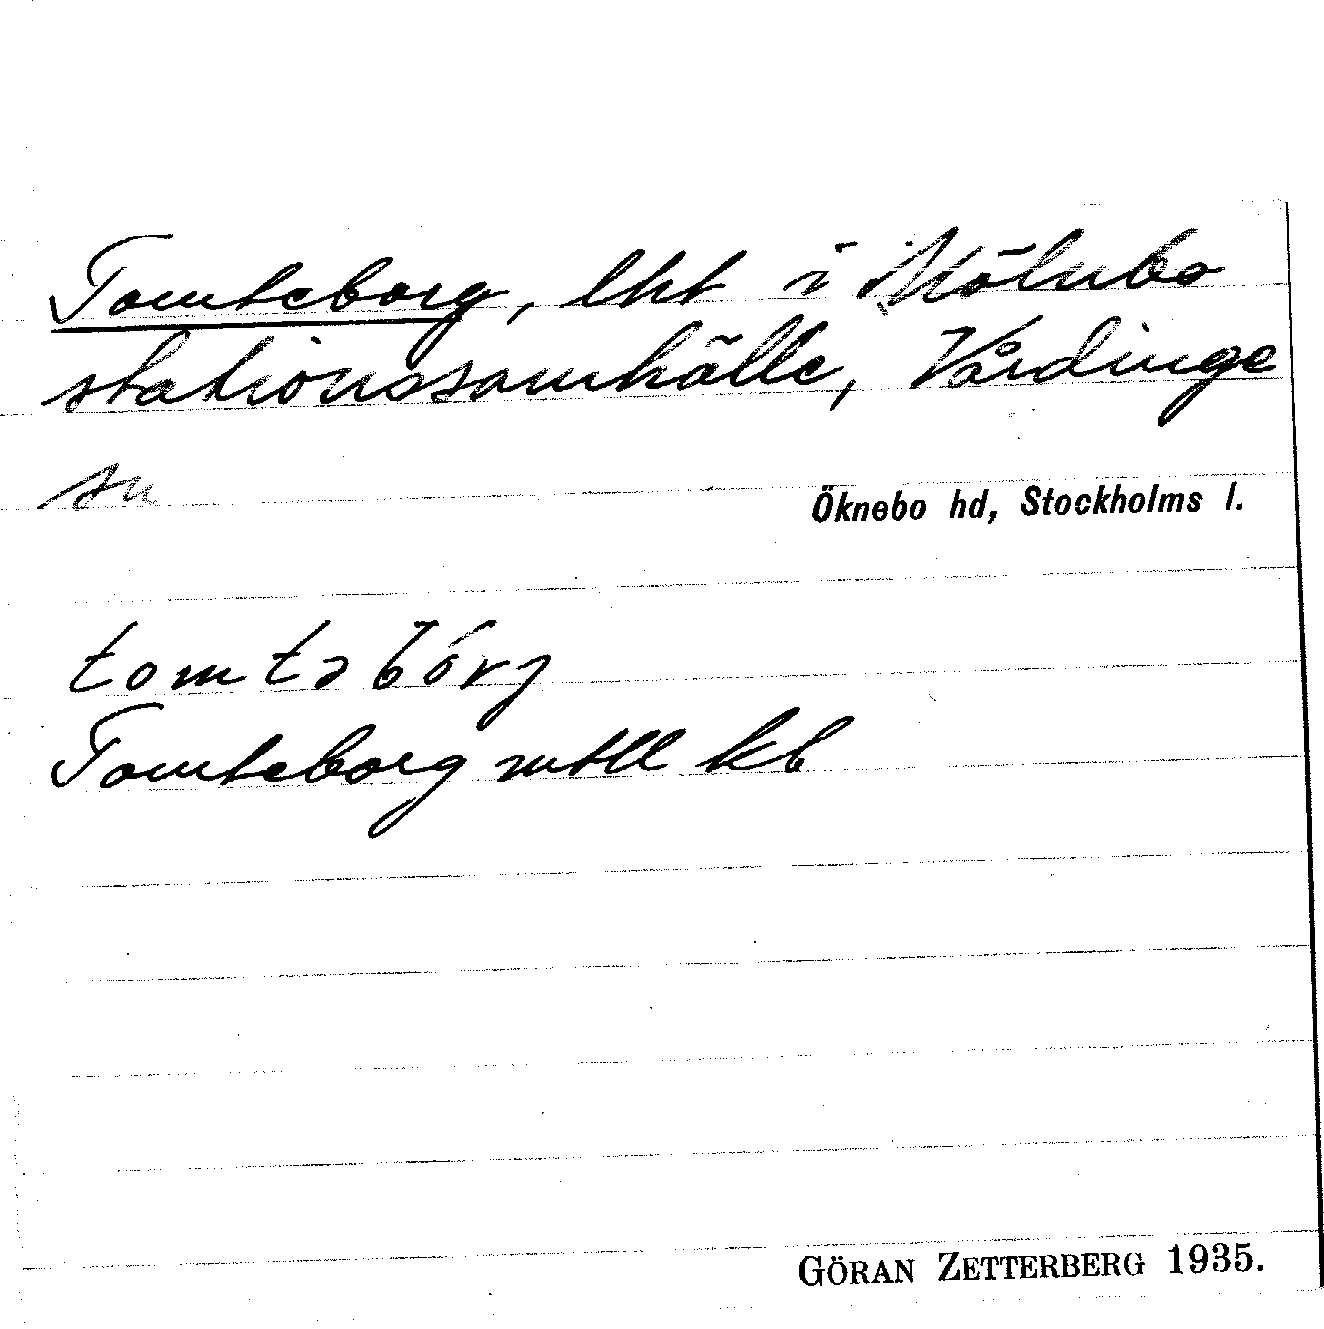 Tomteborg, lht i Mölnbo
stationssamhälle, Vårdinge
sn
Öknebo hd, Stockholms l.
tomtəbórj
Tomteborg mtll kb
GÖRAN ZETTERBERG 1935.